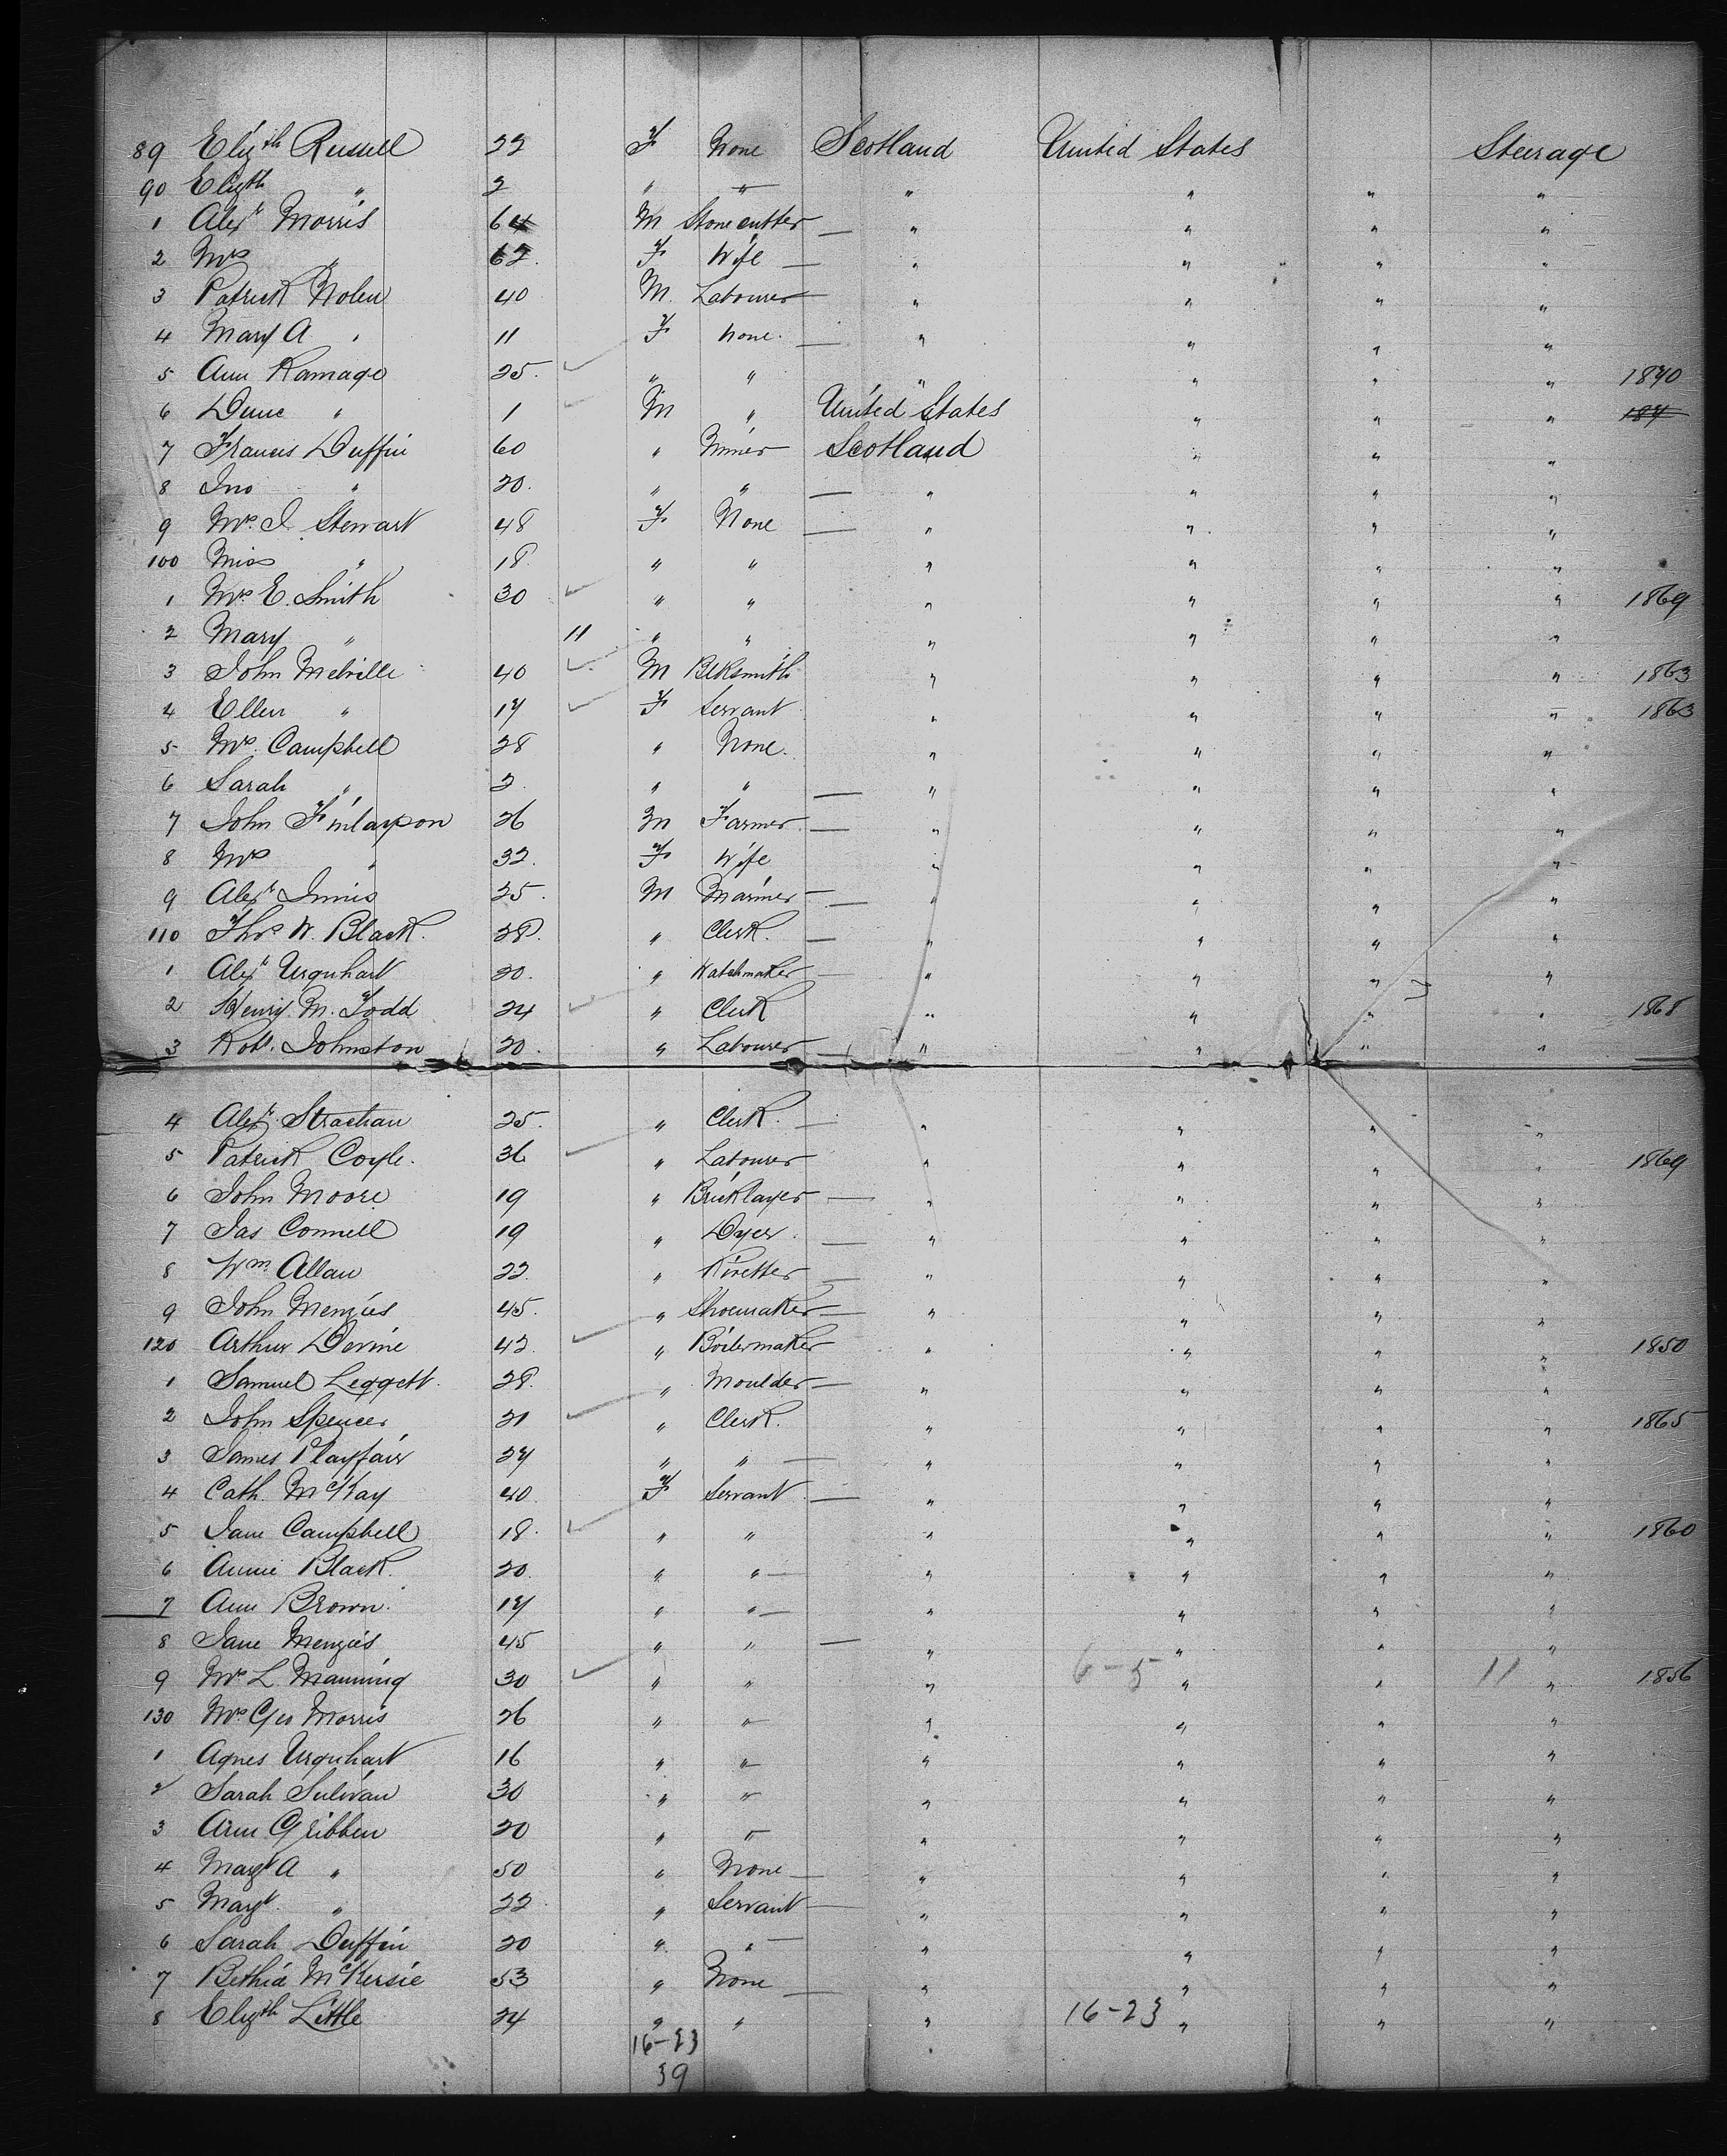 89 Elizth Russell 22 F None Scotland United States Steerage
90 Elizth " 2 " " " " " "
1 Alexr Morris 64 M Stonecutter — " " " "
2 Mrs " 62. F Wife — " " " "
3 Patrick Nolen 40 M. Labourer — " " " "
4 Mary A " 11 F None. — " " " "
5 Ann Ramage 25. ✓ " " " " " " 1870
6 Dunc " 1 ✓ M " United States " " " 187
7 Francis Duffin 60 " Miner Scotland " " "
8 Jno " 20. " " — " " " "
9 Mrs. J. Stewart 48 F None — " " " "
100 Miss " 18 " " " " " "
1 Mrs E. Smith 30 ✓ " " " " " " 1869
2 Mary " 11 " " " " " "
3 John Melville 40 ✓ M Blksmith " " " " 1863
4 Ellen " 17 ✓ F Servant " " " " 1863
5 Mrs. Campbell 28 " None. " " " "
6 Sarah " 2. " " — " " " "
7 John Finlayson 26 M Farmer. — " " " "
8 Mrs " 32. F Wife " " " "
9 Alexr Innis 25. M Mariner — " " " "
110 Thos W. Black. 28. " Clerk. — " " " "
1 Alexr Urquhart 20. " Watchmaker — " " " "
2 Henry M. Todd 24 ✓ " Clerk " " " " 1868
3 Robt. Johnston 20. " Labourer — " " " "
4 Alexr. Strachan 25. " Clerk. — " " " "
5 Patrick Coyle. 36 ✓ " Labourer " " " " 1869
6 John Moore 19 " Bricklayer — " " " "
7 Jas Connell 19 " Dyer. — " " " "
8 Wm. Allan 22. " Rivetter — " " " "
9 John Menzies 45. " Shoemaker — " " " "
120 Arthur Devine 42. ✓ " Boilermaker " " " " 1850
1 Samuel Leggett. 28. " Moulder — " " " "
2 John Spencer 21 ✓ " Clerk. " " " " 1865
3 James Playfair 27 " " — " " " "
4 Cath. McKay 40. F Servant. — " " " "
5 Jane Campbell 18. ✓ " " " " " " 1860
6 Annie Black. 20. " " — " " " "
7 Ann Brown. 17 " " — " " " "
8 Jane Menzies 45 " " — " " " "
9 Mrs L. Manning 30 ✓ " " " 6-5 " " 11 " 1856
130 Mrs Geo Morris 26 " " " " " "
1 Agnes Urquhart 16 " " " " " "
2 Sarah Sulivan 30 " " " " " "
3 Ann Gribben 20 " " " " " "
4 Margt A " 50 " None — " " " "
5 Margt. " 22. " Servant — " " " "
6 Sarah Duffin 20 " " — " " " "
7 Bethia McKersie 53 " None — " " " "
8 Elizth Little 24 " " " 16-23 " " "
16-23
39